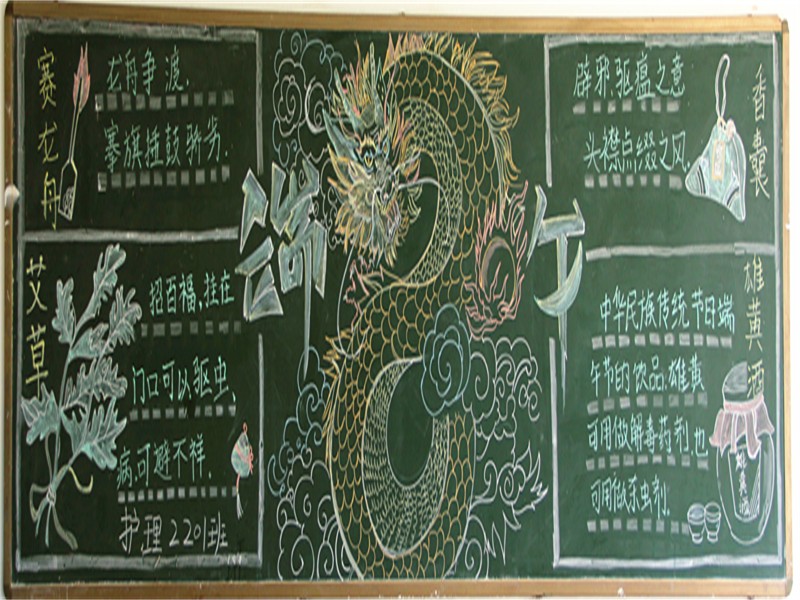 赛龙舟
龙舟争渡,
搴旗捶鼓骄劣.
艾草
招百福,挂在
门口可以驱虫、
病,可避不祥.
护理2201班
端午
香囊
辟邪、驱瘟之意
头襟点缀之风.
雄黄酒
中华民族传统节日端
午节的饮品.雄黄
可用做解毒药剂,也
可用做杀虫剂.
雄黄酒